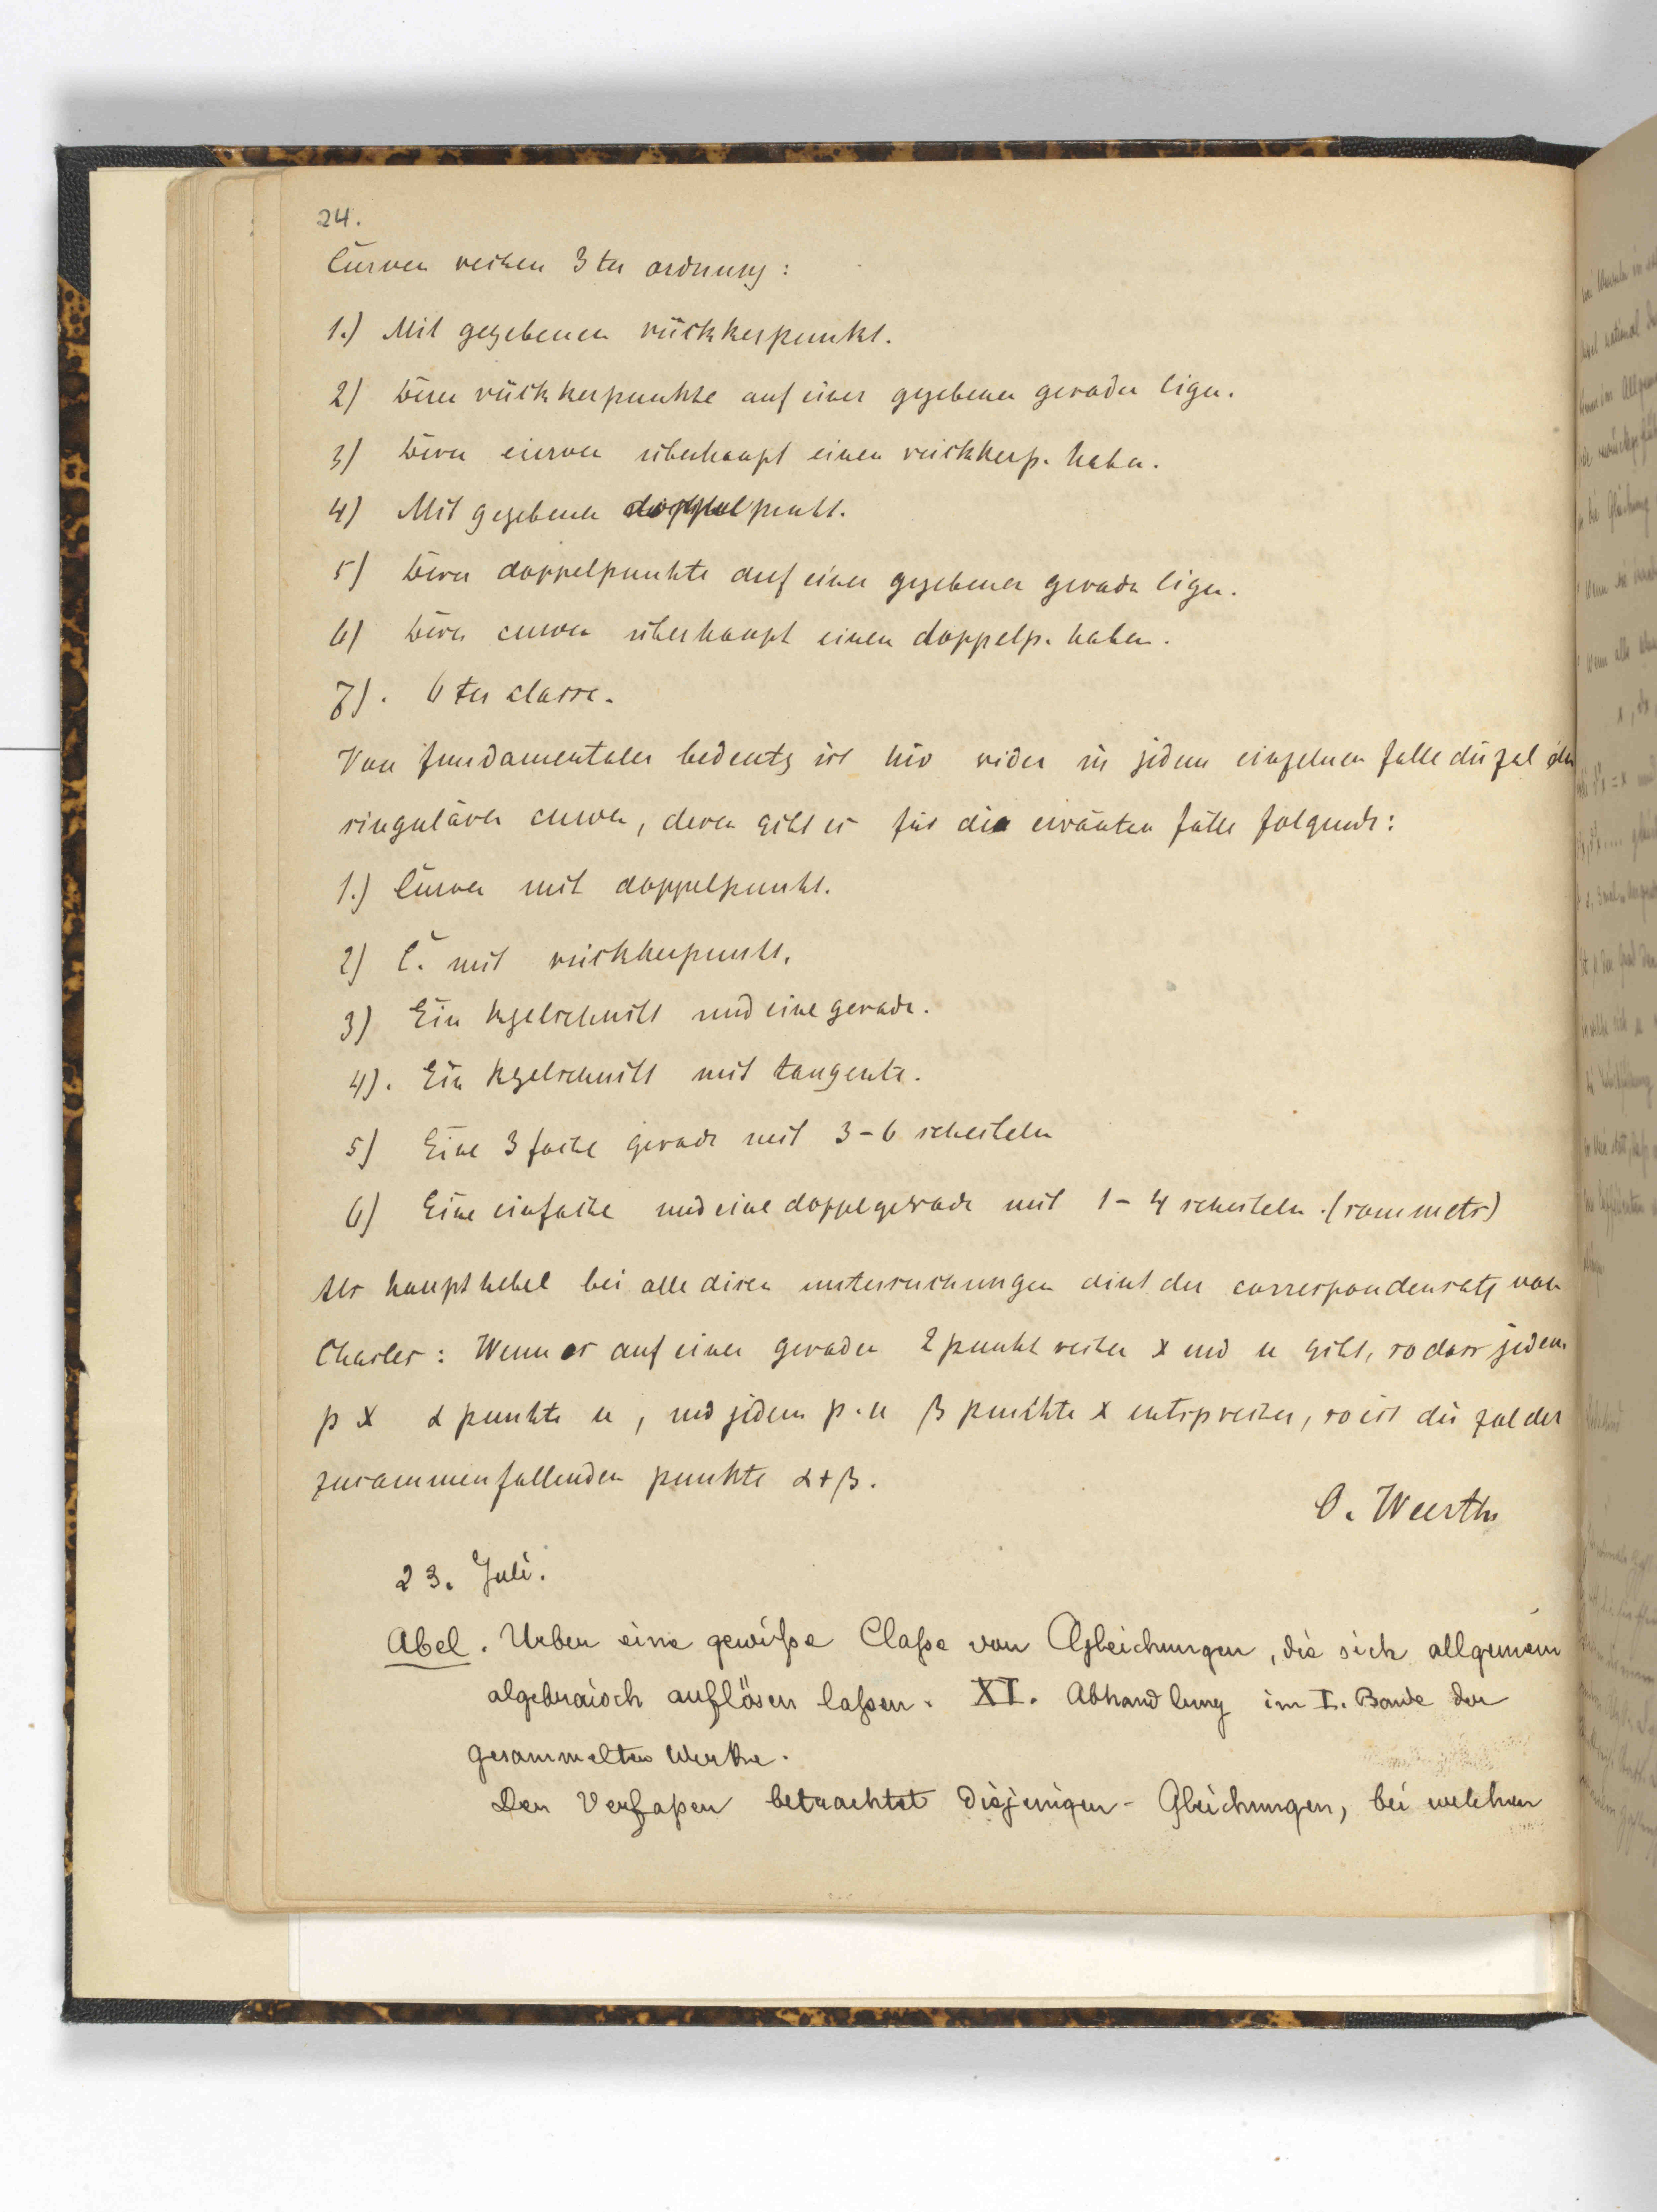 24.
Curven reihen 3ter ordnung:
1.) Mit gegebenem rückkerpunkt.
2) Deren rückkerpunkte auf einer gegebenen geraden ligen.
3) Deren curven überhaupt einen rückkerp. haben.
4) Mit gegebenem doppelpunkt.
5) Deren doppelpunkte auf einer gegebenen geraden ligen.
6) Deren curven überhaupt einen doppelp. haben.
7). 6ter classe.
Von fundamentaler bedeutg ist hir wider in jedem einzelnen falle die zal der
singulären curven, deren gibt es für die erwänten fälle folgende:
1.) Curven mit doppelpunkt.
2) C. mit rückkerpunkt.
3) Ein kgelschnitt und eine gerade.
4). Ein kgelschnitt mit tangente.
5) Eine 3fache gerade mit 3-6 scheiteln
6) Eine einfache und eine doppelgerade mit 1-4 scheiteln.
Als haupthebel bei alle disen untersuchungen dint der correspondenzsatz von
Chasles: Wenn es auf einer geraden 2 punktreihen x und u gibt, so dass jedem
p x α punkte u, und jedem p. u β punkte x entsprechen, so ist die zal der
zusammenfallenden punkte α+β.
O. Weerth
23. Juli.
Abel. Ueber eine gewisse Classe von Gleichungen, die sich allgemein
algebraisch auflösen lassen. XI. Abhandlung im I. Bande der
gesammelten Werke.
Der Verfasser betrachtet diejenigen Gleichungen, bei welchen